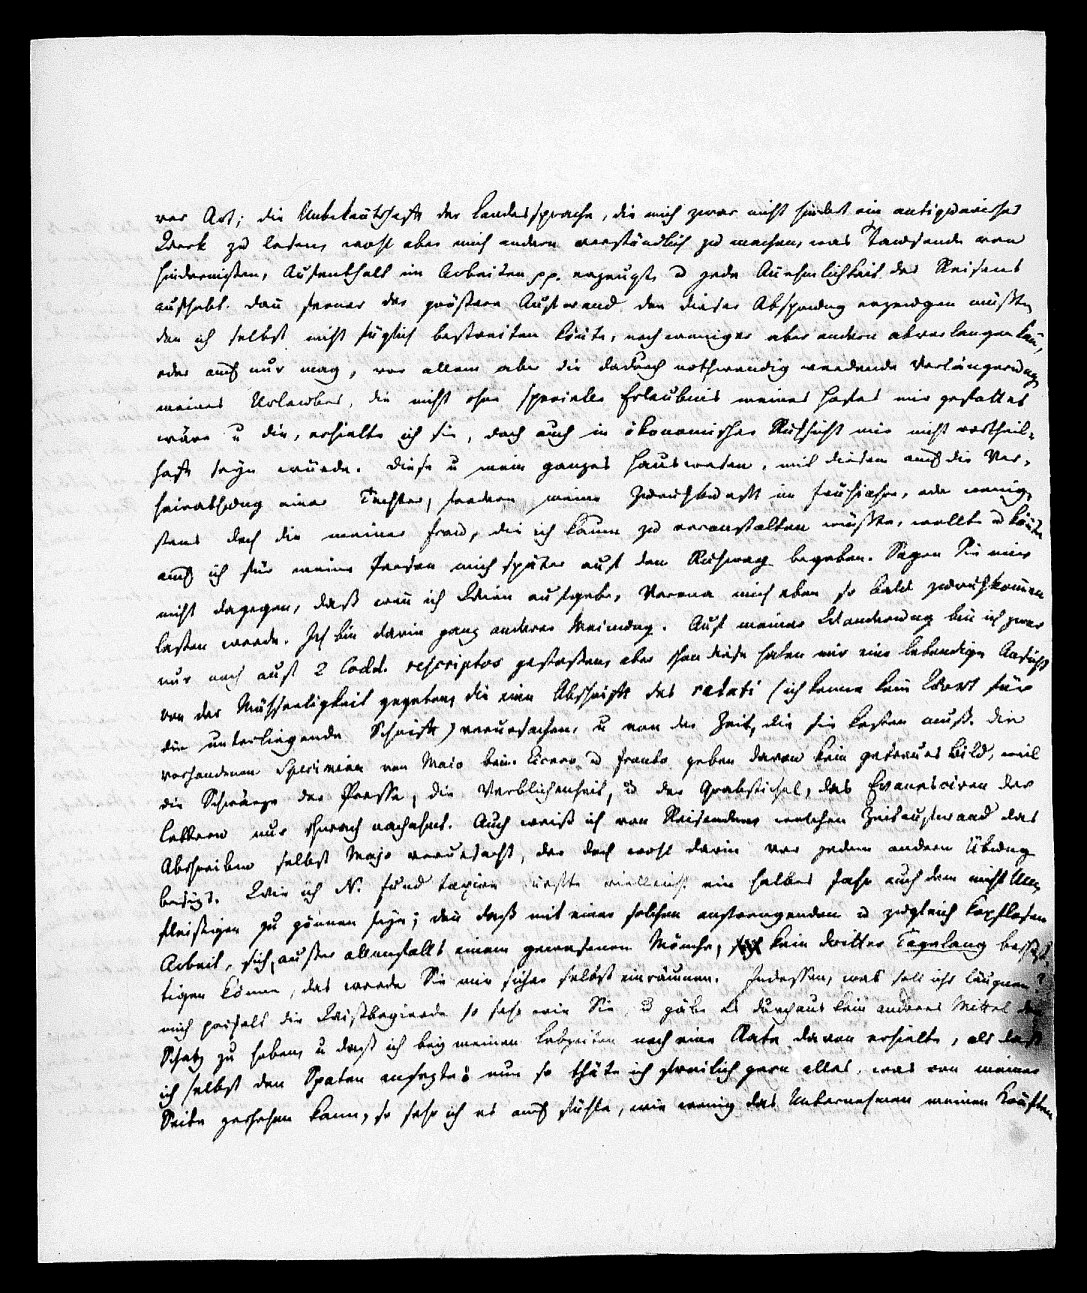 rer Art; die Unbekañtschaft der Landessprache, die mich zwar nicht hindert ein antiquarisches
Werk zu lesen, wohl aber mich andern verständlich zu machen, was Tausende von
Hindernissen, Aufenthalt im Arbeiten pp. erzeugt, u jede Annehmlichkeit des Reisens
aufhebt. Dañ ferner der größere Aufwand den dieser Absprung erzeugen müßte,
den ich selbst nicht füglich bestreiten köñte, noch weniger aber andern abverlangen kañ,
oder auch nur mag, vor allem aber die dadurch nothwendig werdende Verlängerung
meines Urlaubes, die nicht ohne specielle Erlaubnis meines Hofes mir gestattet
wäre u die, erhielte ich sie, doch auch in ökonomischer Rücksicht mir nicht vortheil-
haft seyn würde. Diese u mein ganzes Hauswesen, mit diesem auch die Ver-
heirathung einer Tochter, fordern meine Zurückkunft im Frühjahre, oder wenig-
stens doch die meiner Frau, die ich kaum zu veranstalten wüßte, wollte u köñte
auch ich für meine Person mich später auf den Rückweg begeben. Sagen Sie mir
nicht dagegen, daß weñ ich Wien aufgebe, Verona mich eben so bald zurückkom̃en
lassen werde. Ich bin darin ganz anderer Meinung. Auf meiner Wanderung bin ich zwar
nur noch auf 2 Codd. rescriptos gestoßen, aber schon diese haben mir eine lebendige Ansicht
von der Mühseeligkeit gegeben, die eine Abschrift des (ich kenne kein Wort für
die unterliegende Schrift) verursachen, u von der Zeit, die sie kosten muß. Die
vorhandenen Specimina von Maio beim Cicero u Fronto geben davon kein getreues Bild, weil
die Schwärze der Presse, die Verblichenheit, u der Grabstichel, das Evanesciren der
Lettern nur schwach nachahmt. Auch weiß ich von Reisenden welchen Zeitaufwand das
Abschreiben selbst Majo verursacht, der doch wohl darin vor jedem andern Übung
besizt. Wie ich N. Fund taxire, dürfte vielleicht ein halbes Jahr auch dem nicht Un-
fleißigen zu gönnen seyn; deñ daß mit einer solchen anstrengenden u zugleich kopflosen
Arbeit, sich, außer allenfalls einem gewesenen Mönche, kein dritter Tagelang beschäf-
tigen könne, das werden Sie mir sicher selbst einräumen. Indessen, was soll ichs läugnen?
mich peinigt die Wißbegierde so sehr wie Sie, u gäbe es durchaus kein anderes Mittel den
Schatz zu heben, u daß ich bey meinen Lebzeiten noch eine Rate davon erhielte, als daß
ich selbst den Spaten ansezte: nun so thäte ich freilich gern alles, was von meiner
Seite geschehen kann, so sehr ich es auch fühle, wie wenig das Unternehmen meinen Kräften